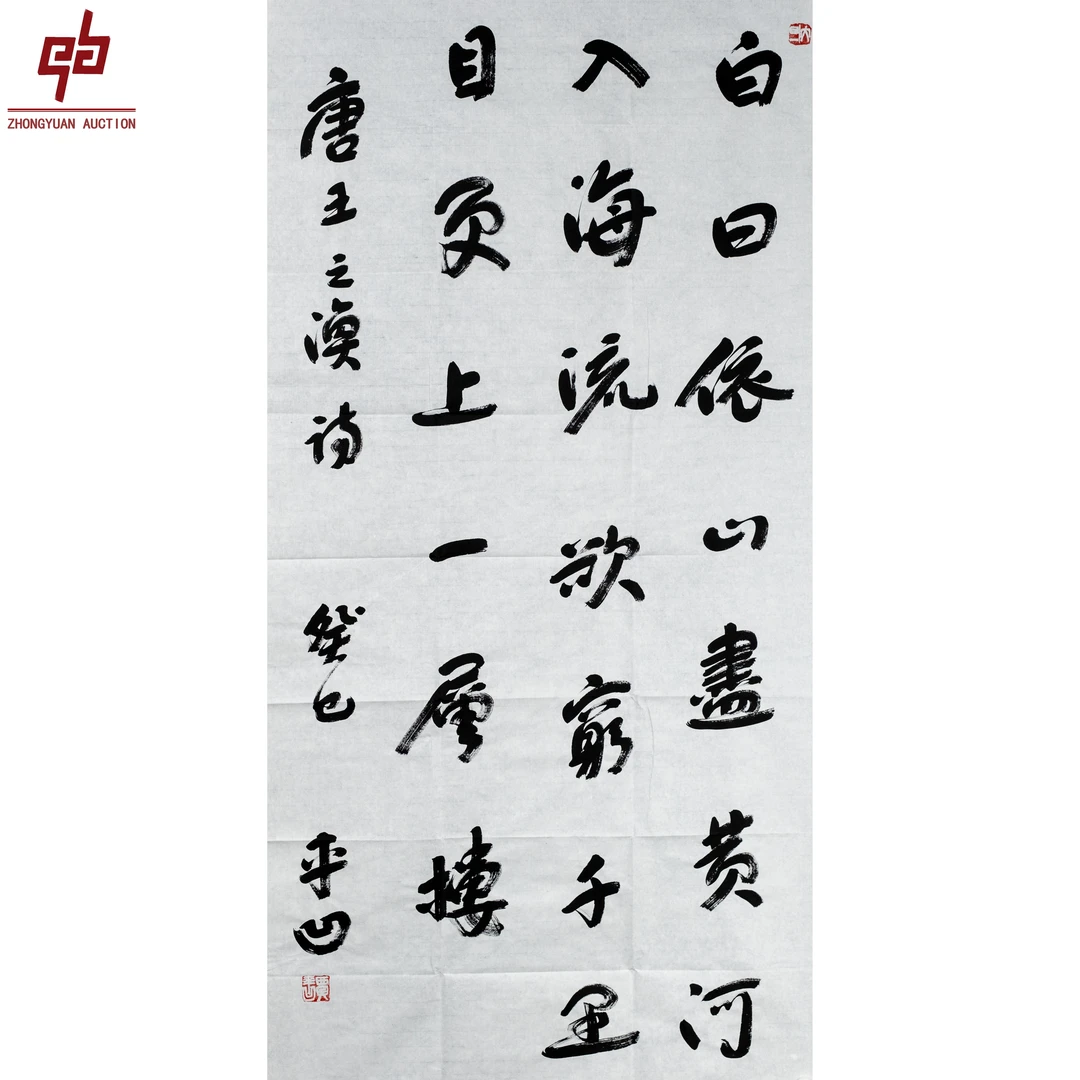 ZHONGYUAN AUCTION
白日依山盡黄河
入海流欲窮千里
目更上一層樓
唐王之渙詩 癸巳 平凹